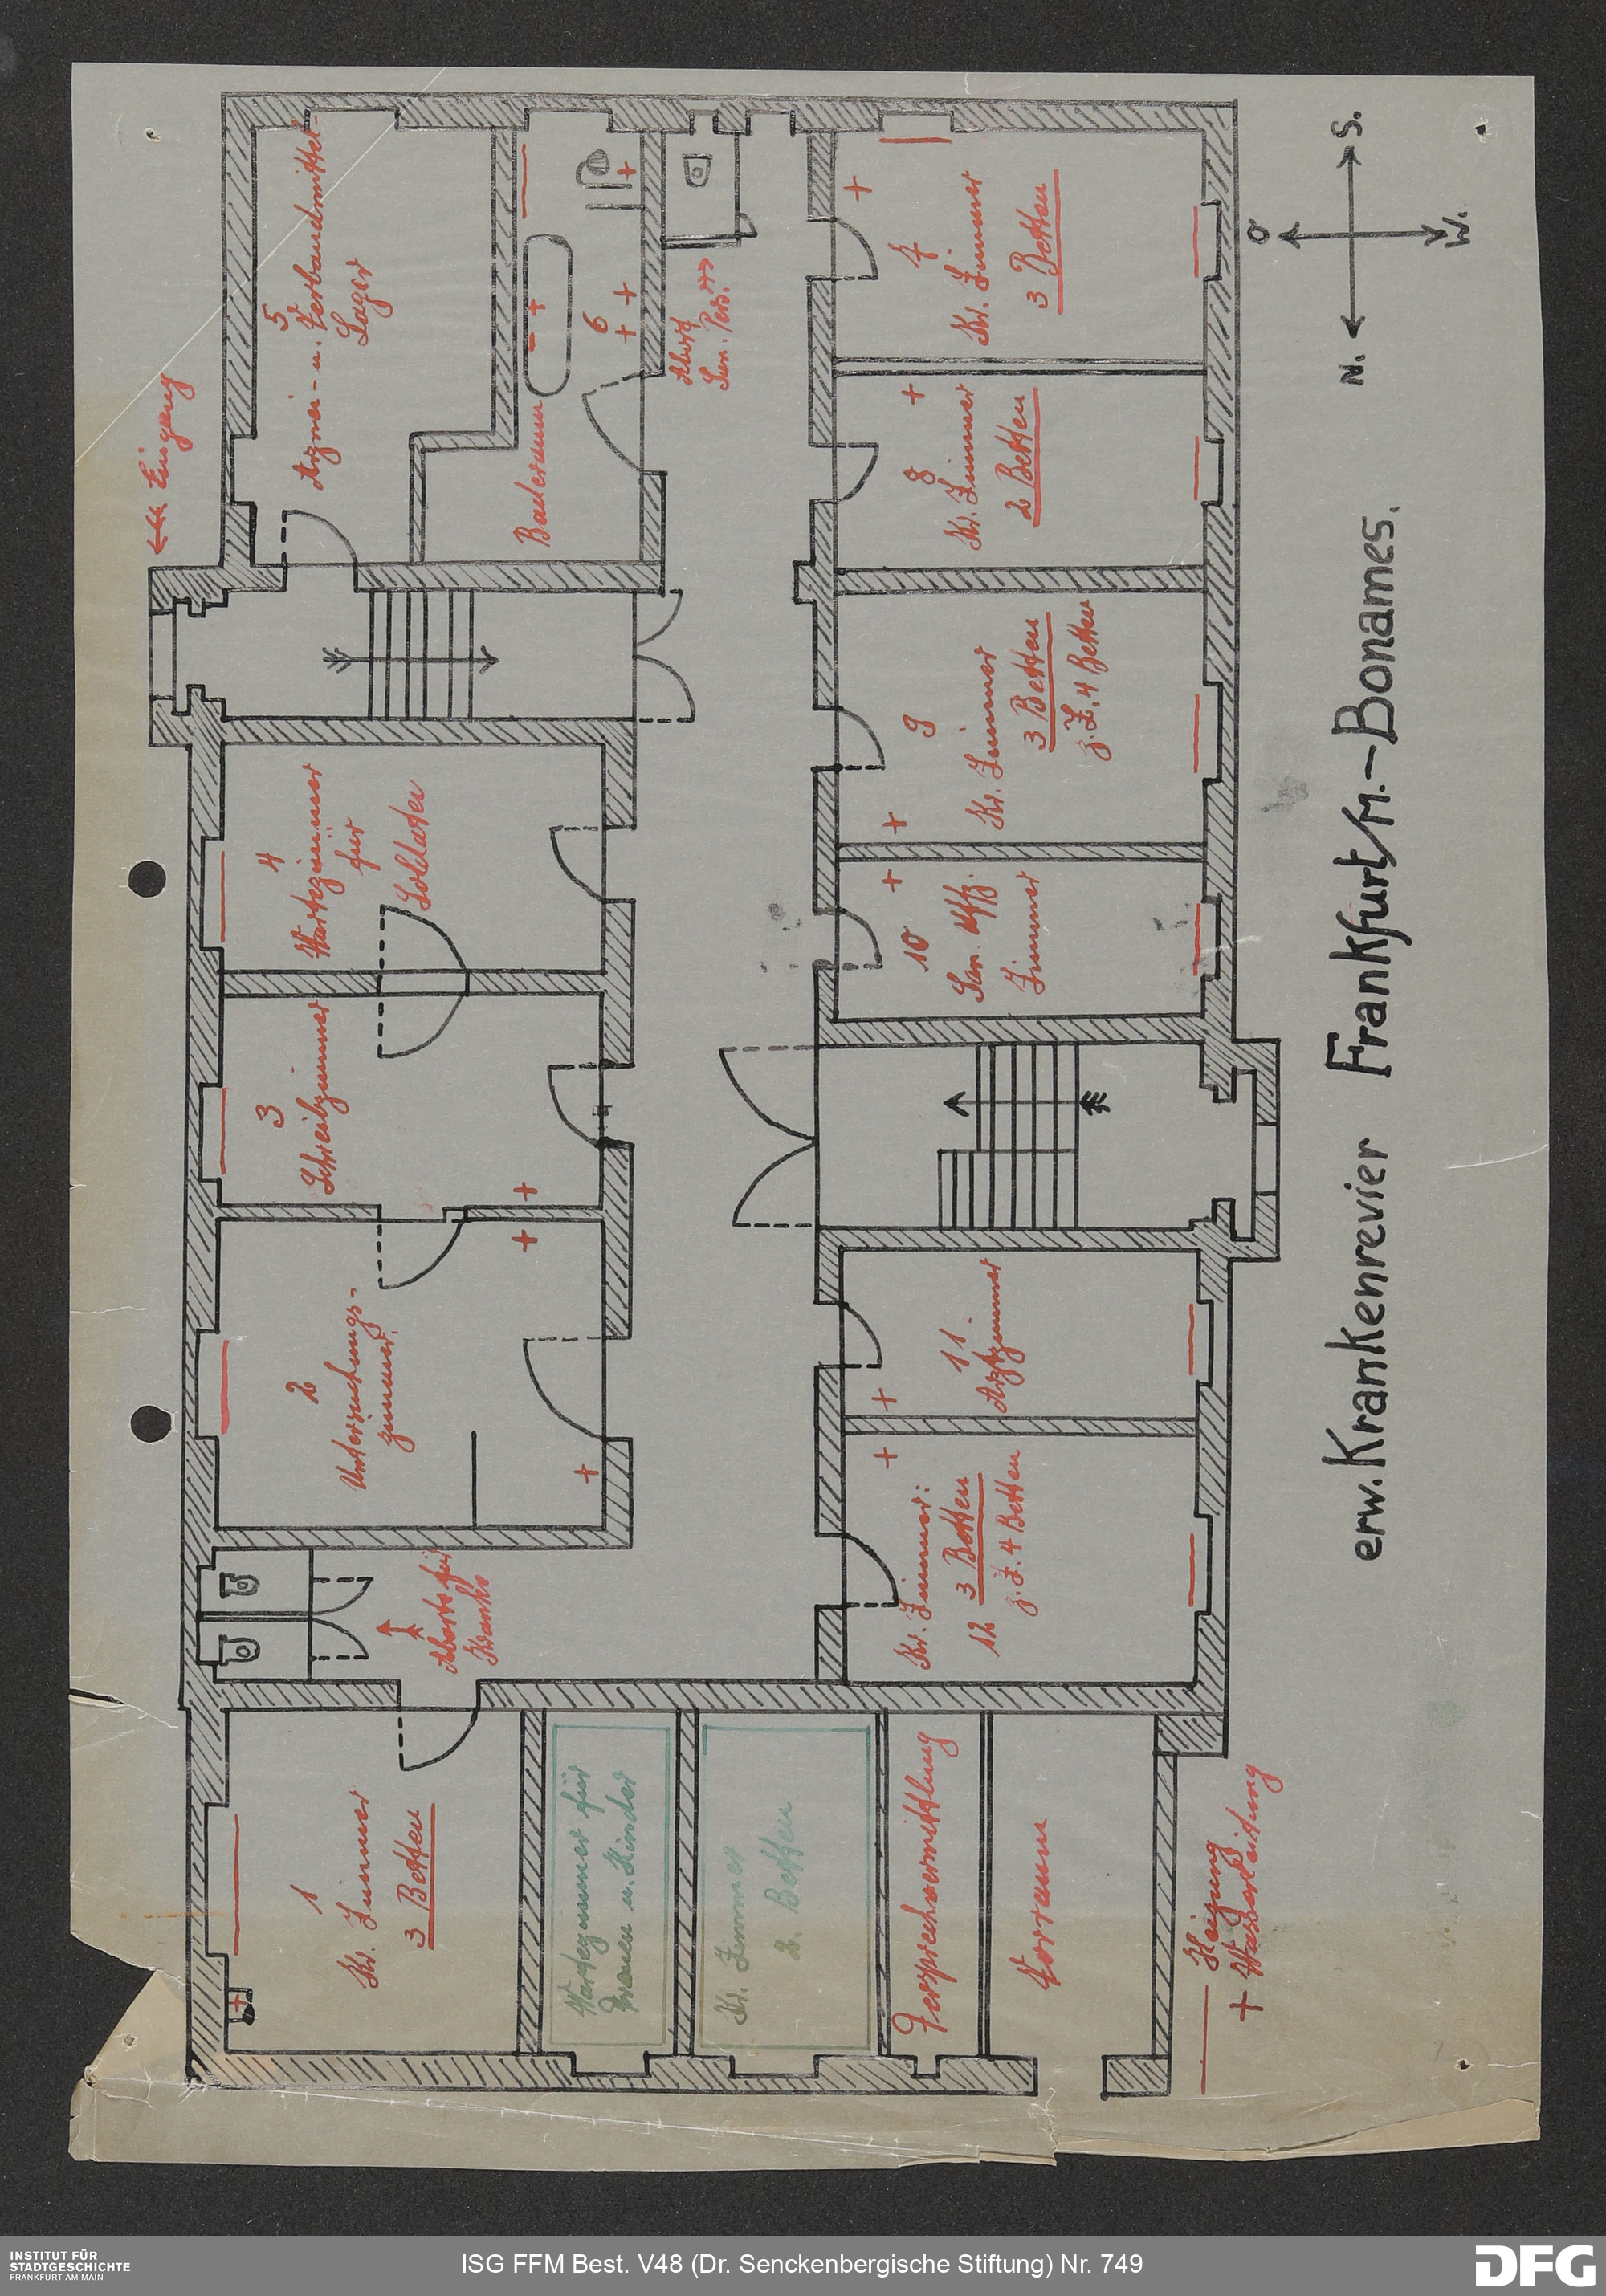 ←«« Eingang
5
Arznei- u. Verbandmittel-
Lager
6
Baderaum
Abort
San. Pers. »»
4
Wartezimmer
für
Soldaten
3
Schreibzimmer
2
Untersuchungs-
zimmer.
Aborte für
Kranke
1
Kr. Zimmer
3 Betten
Wartezimmer für
Frauen u. Kinder
Kr. Zimmer
2. Betten
Fersprechvermittlung
Vorraum
7
Kr. Zimmer
3 Betten
8
Kr. Zimmer
2 Betten
9
Kr. Zimmer
3 Betten
z. Z. 4 Betten
10
San. Uffz.
Zimmer
11.
Arztzimmer
Kr. Zimmer:
12 3 Betten
z. Z. 4 Betten
— Heizung
+ Wasserleitung
O
S.
N.
W.
erw. Krankenrevier Frankfurt/M.-Bonames.
INSTITUT FÜR
STADTGESCHICHTE
FRANKFURT AM MAIN
ISG FFM Best. V48 (Dr. Senckenbergische Stiftung) Nr. 749
DFG